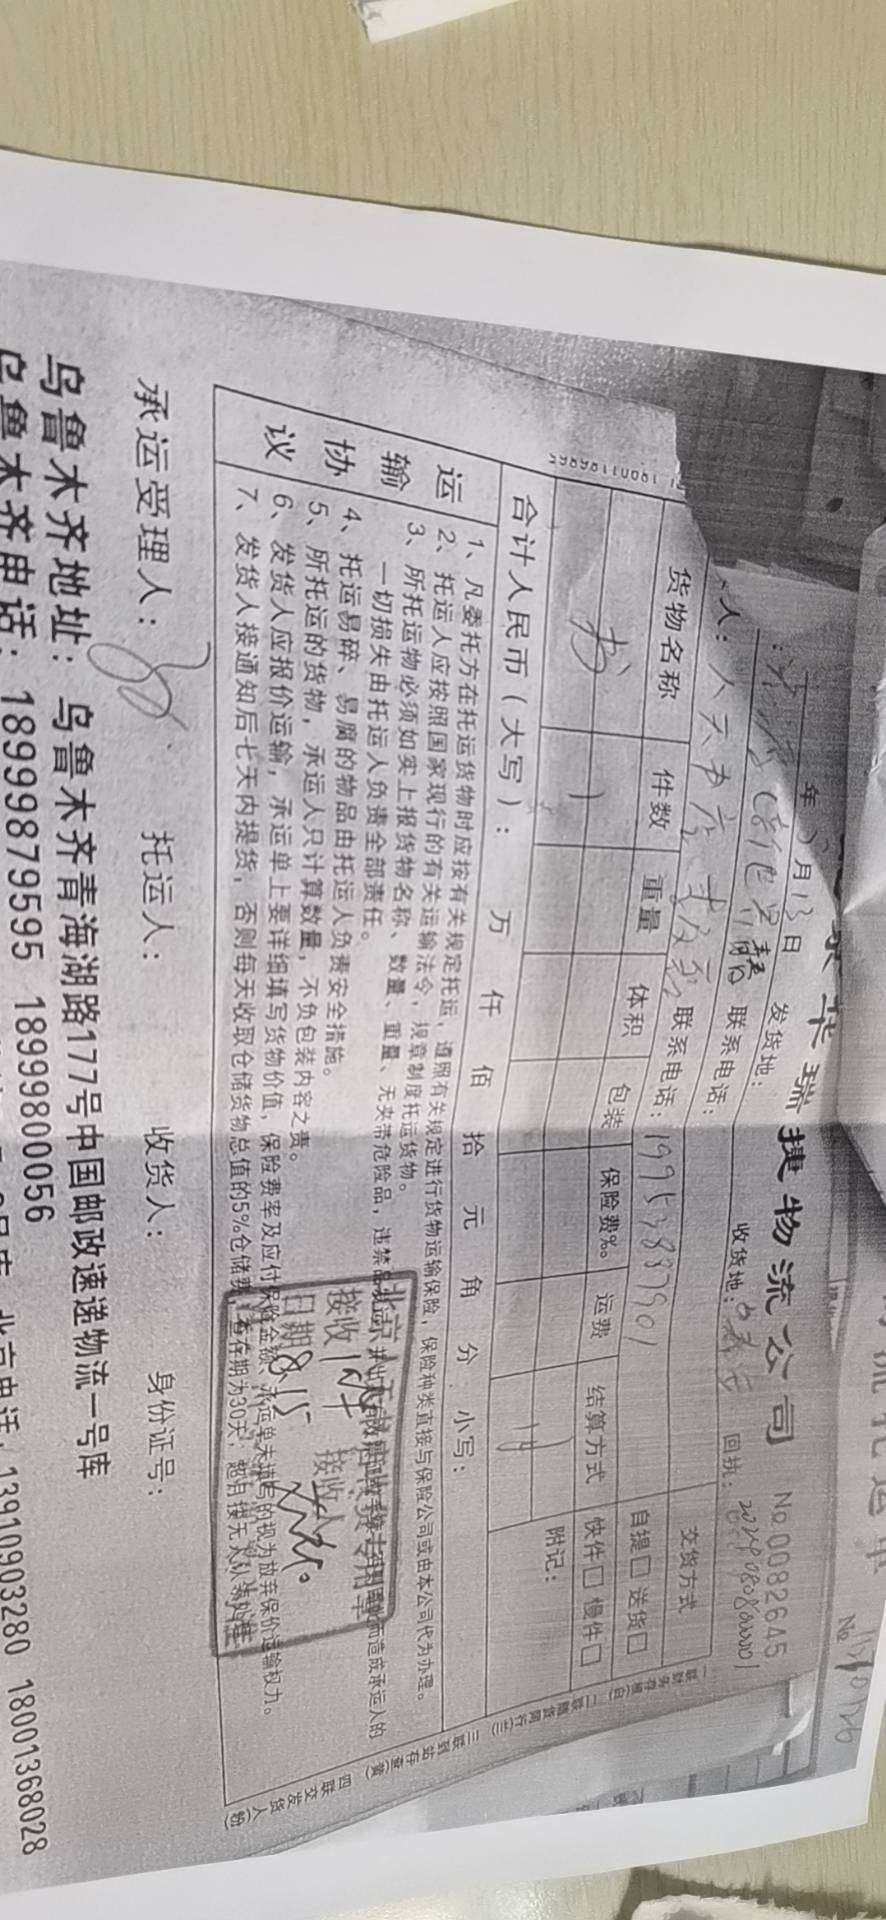 华瑞捷物流公司 No.0082645
年 月13日 发货地: 收货地: 回执:
联系电话:
人: 人天书店 联系电话: 19953887901
货物名称 件数 重量 体积 包装 保险费‰ 运费 结算方式 交货方式
自提□ 送货□
快件□ 慢件□
书 1
附记:
合计人民币(大写): 万 仟 佰 拾 元 角 分 小写:
运输协议
1、凡委托方在托运货物时应按有关规定托运,遵照有关规定进行货物运输保险,保险种类直接与保险公司或由本公司代为办理。
2、托运人应按照国家现行的有关运输法令,规章制度托运货物。
3、所托运物必须如实上报货物名称、数量、重量、无夹带危险品,违禁品 而造成承运人的
一切损失由托运人负责全部责任。
4、托运易碎、易腐的物品由托运人负责安全措施。
5、所托运的货物,承运人只计算数量,不负包装内容之责。
6、发货人应报价运输,承运单上要详细填写货物价值,保险费率及应付保险金额、承运单未填写的视为放弃保价运输权力。
7、发货人接通知后七天内提货,否则每天收取仓储货物总值的5%仓储费,暂存期为30天,
北京人天
接收 接收人
日期8.15
一联财务存根(白) 二联随货同行(兰) 三联到站存查(黄) 四联交发货人(粉)
承运受理人: 托运人: 收货人: 身份证号:
乌鲁木齐地址: 乌鲁木齐青海湖路177号中国邮政速递物流一号库
乌鲁木齐电话: 18999879595 18999800056
北京电话: 13910903280 18001368028